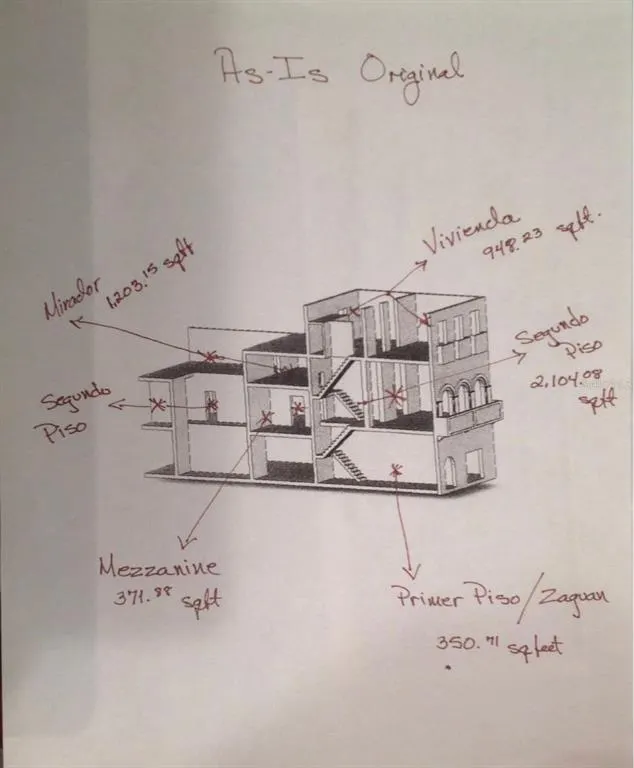 As-Is Original
Vivienda
948.23 sqft.
Mirador
1,203.15 sqft
Segundo
Piso
2,104.08
sqft
Segundo
Piso
Mezzanine
371.88 sqft
Primer Piso/Zaguan
350.71 sq feet